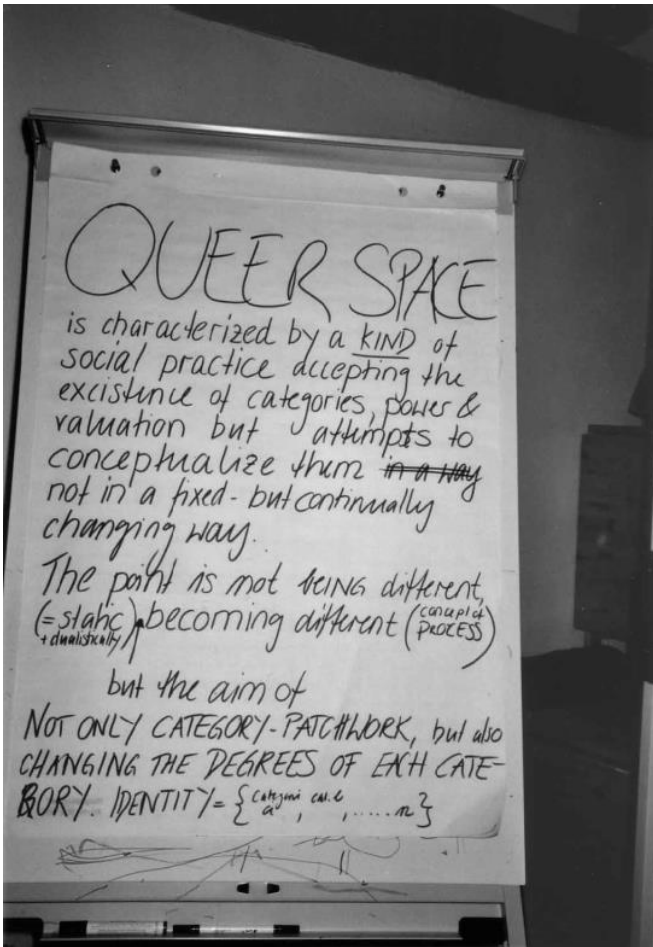 QUEER SPACE
is characterized by a KIND of
social practice accepting the
excistence of categories, power &
valuation but attempts to
conceptualize them in a way
not in a fixed - but continually
changing way.
The point is not BEING different,
(= static + dualistically) becoming different (concept of PROCESS)
but the aim of
NOT ONLY CATEGORY-PATCHWORK, but also
CHANGING THE DEGREES OF EACH CATE-
GORY. IDENTITY = { a , , ..... n }